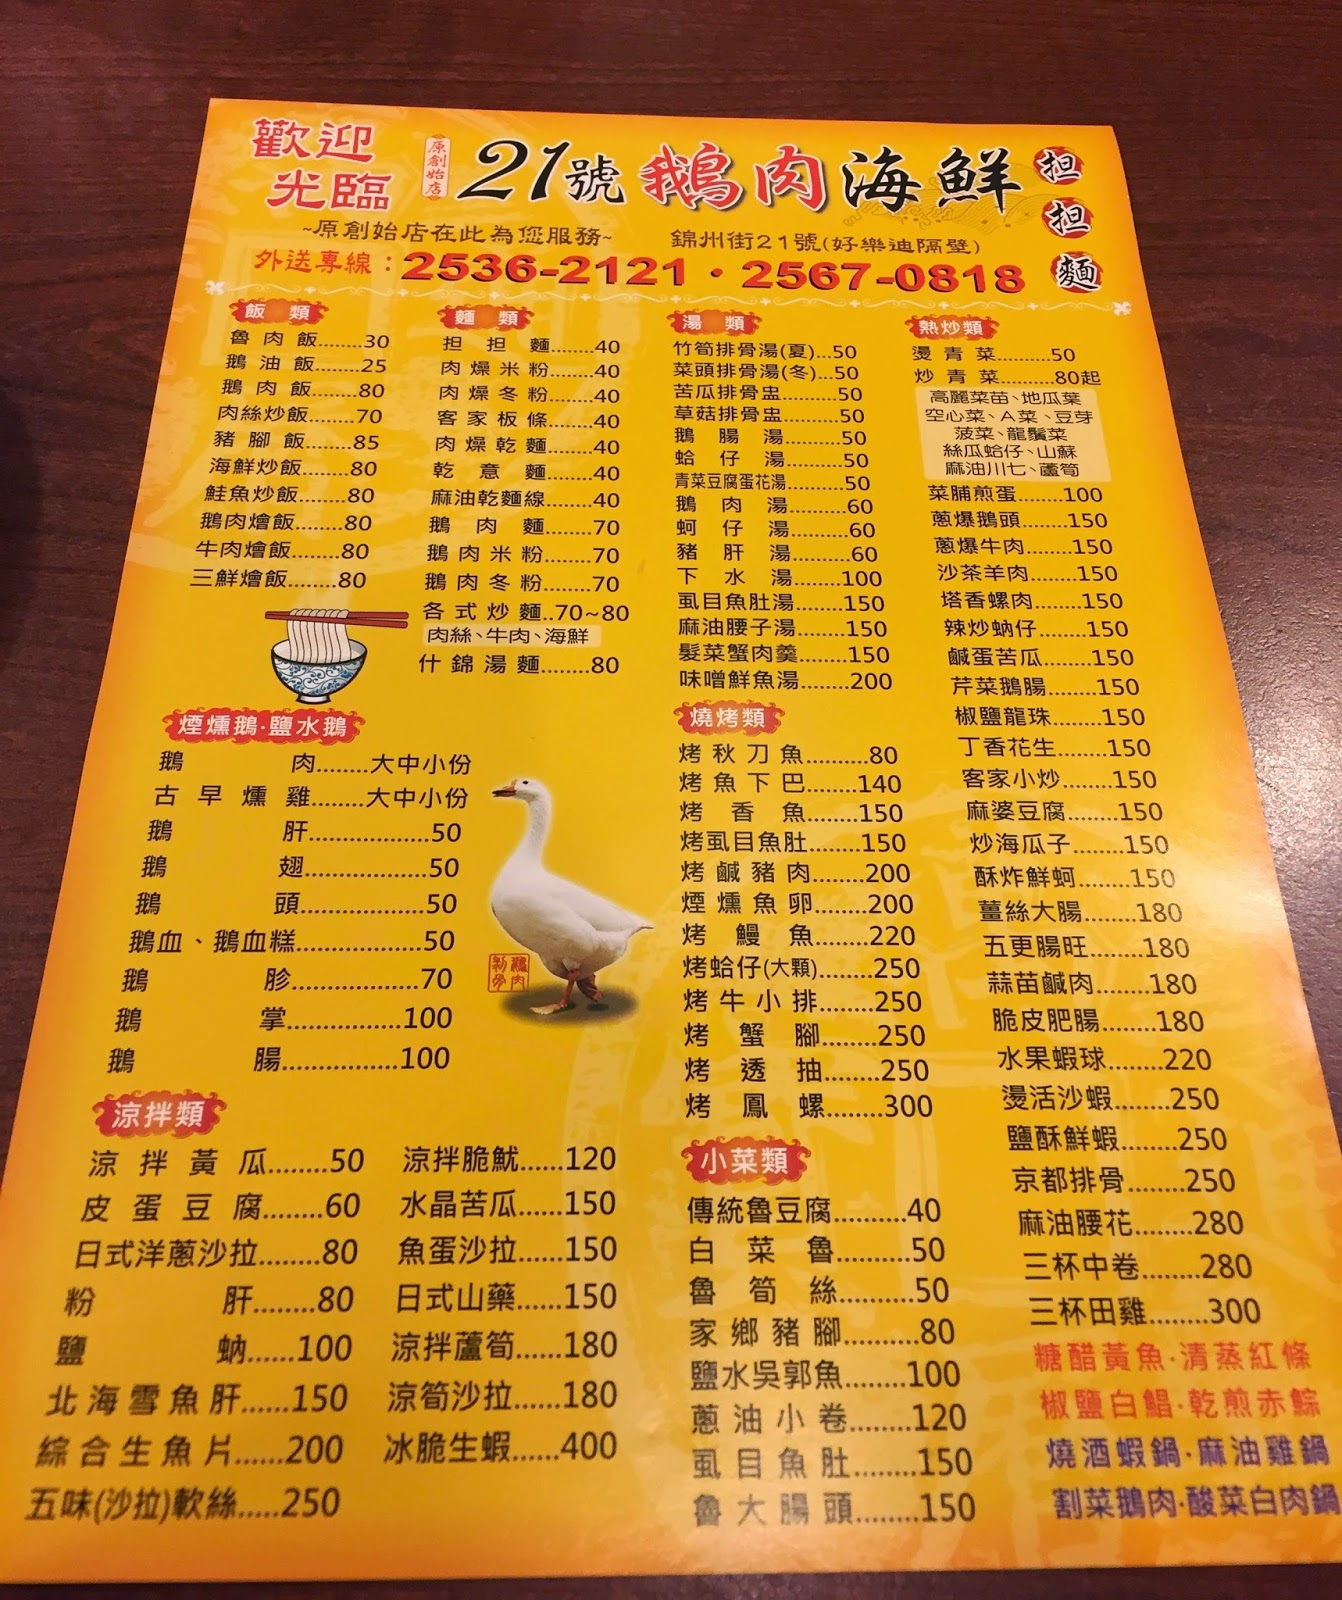 歡迎
光臨
原創始店
21號鵝肉海鮮
担担麵
~原創始店在此為您服務~
錦州街21號(好樂迪隔壁)
外送專線：2536-2121・2567-0818
飯 類
魯肉飯........30
鵝油飯........25
鵝肉飯........80
肉絲炒飯.......70
豬腳飯........85
海鮮炒飯.......80
鮭魚炒飯.......80
鵝肉燴飯.......80
牛肉燴飯.......80
三鮮燴飯.......80
麵 類
担担麵........40
肉燥米粉.......40
肉燥冬粉.......40
客家板條.......40
肉燥乾麵.......40
乾意麵........40
麻油乾麵線......40
鵝肉麵........70
鵝肉米粉.......70
鵝肉冬粉.......70
各式炒麵..70~80
肉絲、牛肉、海鮮
什錦湯麵.......80
湯 類
竹筍排骨湯(夏)...50
菜頭排骨湯(冬)...50
苦瓜排骨盅........50
草菇排骨盅........50
鵝腸湯........50
蛤仔湯........50
青菜豆腐蛋花湯........50
鵝肉湯........60
蚵仔湯........60
豬肝湯........60
下水湯.......100
虱目魚肚湯.......150
麻油腰子湯.......150
髮菜蟹肉羹.......150
味噌鮮魚湯.......200
熱炒類
燙青菜..........50
炒青菜.........80起
高麗菜苗、地瓜葉
空心菜、A菜、豆芽
菠菜、龍鬚菜
絲瓜蛤仔、山蘇
麻油川七、蘆筍
菜脯煎蛋........100
蔥爆鵝頭........150
蔥爆牛肉........150
沙茶羊肉........150
塔香螺肉........150
辣炒蚋仔........150
鹹蛋苦瓜........150
芹菜鵝腸........150
椒鹽龍珠........150
丁香花生........150
客家小炒........150
麻婆豆腐........150
炒海瓜子........150
酥炸鮮蚵........150
薑絲大腸........180
五更腸旺........180
蒜苗鹹肉........180
脆皮肥腸........180
水果蝦球........220
燙活沙蝦........250
鹽酥鮮蝦........250
京都排骨........250
麻油腰花........280
三杯中卷........280
三杯田雞........300
糖醋黃魚·清蒸紅條
椒鹽白鯧·乾煎赤鯮
燒酒蝦鍋·麻油雞鍋
割菜鵝肉·酸菜白肉鍋
煙燻鵝·鹽水鵝
鵝肉........大中小份
古早燻雞........大中小份
鵝肝.................50
鵝翅.................50
鵝頭.................50
鵝血、鵝血糕.................50
鵝胗.................70
鵝掌................100
鵝腸................100
燒烤類
烤秋刀魚.........80
烤魚下巴........140
烤香魚........150
烤虱目魚肚.......150
烤鹹豬肉........200
煙燻魚卵........200
烤鰻魚........220
烤蛤仔(大顆).......250
烤牛小排........250
烤蟹腳........250
烤透抽........250
烤鳳螺........300
涼拌類
涼拌黃瓜........50
皮蛋豆腐........60
日式洋蔥沙拉........80
粉肝........80
鹽蚋......100
北海雪魚肝......150
綜合生魚片......200
五味(沙拉)軟絲.....250
涼拌脆魷......120
水晶苦瓜......150
魚蛋沙拉......150
日式山藥......150
涼拌蘆筍......180
涼筍沙拉......180
冰脆生蝦......400
小菜類
傳統魯豆腐..........40
白菜魯..........50
魯筍絲..........50
家鄉豬腳..........80
鹽水吳郭魚........100
蔥油小卷.........120
虱目魚肚.........150
魯大腸頭.........150